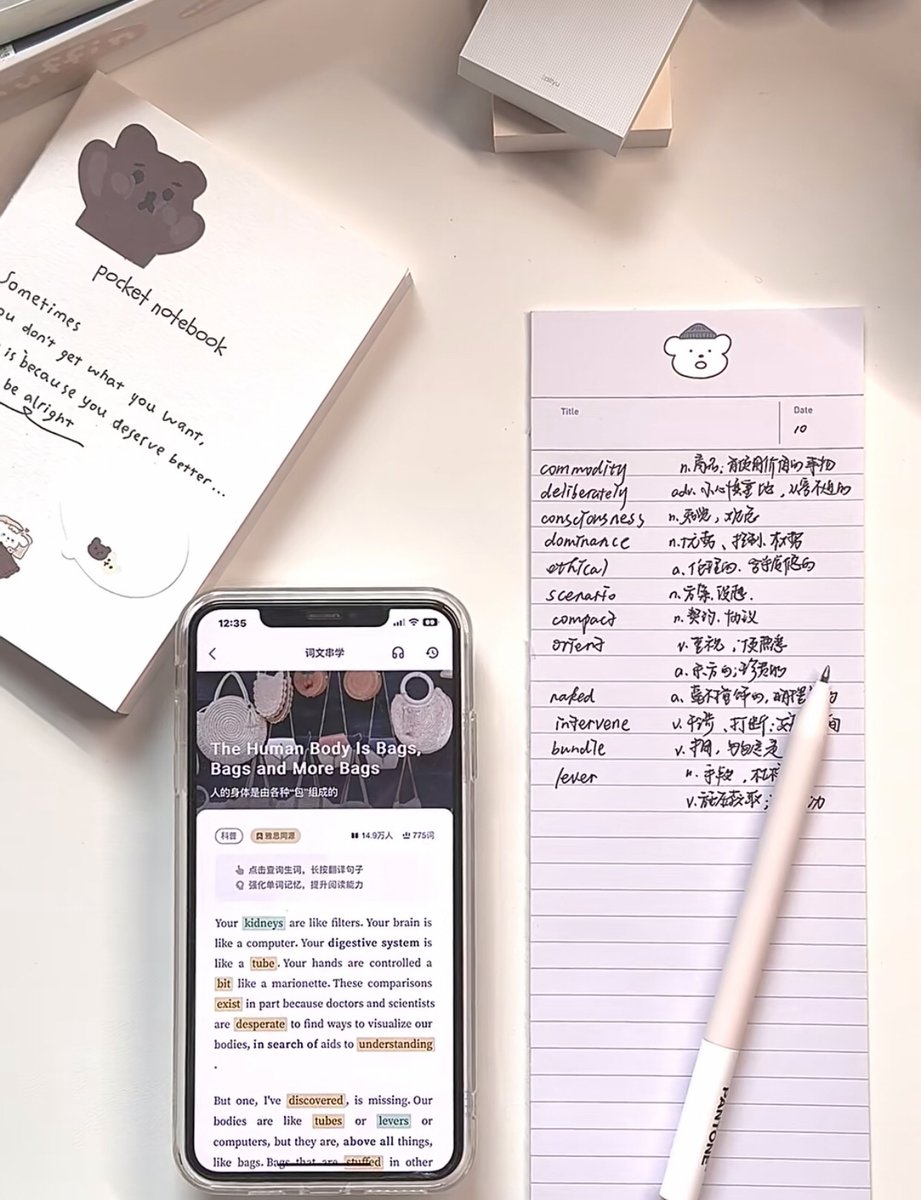 pocket notebook
Sometimes
you don't get what you want,
is because you deserve better...
be alright
Title
Date
10
commodity n.商品；有使用价值的事物
deliberately adv.小心慎重地，从容不迫的
consciousness n.知觉，观念
dominance n.优势、控制.权势
ethical a.伦理的.合乎道德的
scenario n.方案.设想.
compact n.契约.协议
orient v.重视，须照
a.东方的；珍贵的
naked a.毫不掩饰的，
intervene v.干涉、打断；
bundle v.捆，
lever n.手段，杠杆
v.
12:35
词文串学
The Human Body Is Bags,
Bags and More Bags
人的身体是由各种“包”组成的
科普 雅思同源 14.9万人 775词
点击查询生词，长按翻译句子
强化单词记忆，提升阅读能力
Your kidneys are like filters. Your brain is
like a computer. Your digestive system is
like a tube. Your hands are controlled a
bit like a marionette. These comparisons
exist in part because doctors and scientists
are desperate to find ways to visualize our
bodies, in search of aids to understanding
.
But one, I've discovered, is missing. Our
bodies are like tubes or levers or
computers, but they are, above all things,
like bags. Bags that are stuffed in other
PANTONE